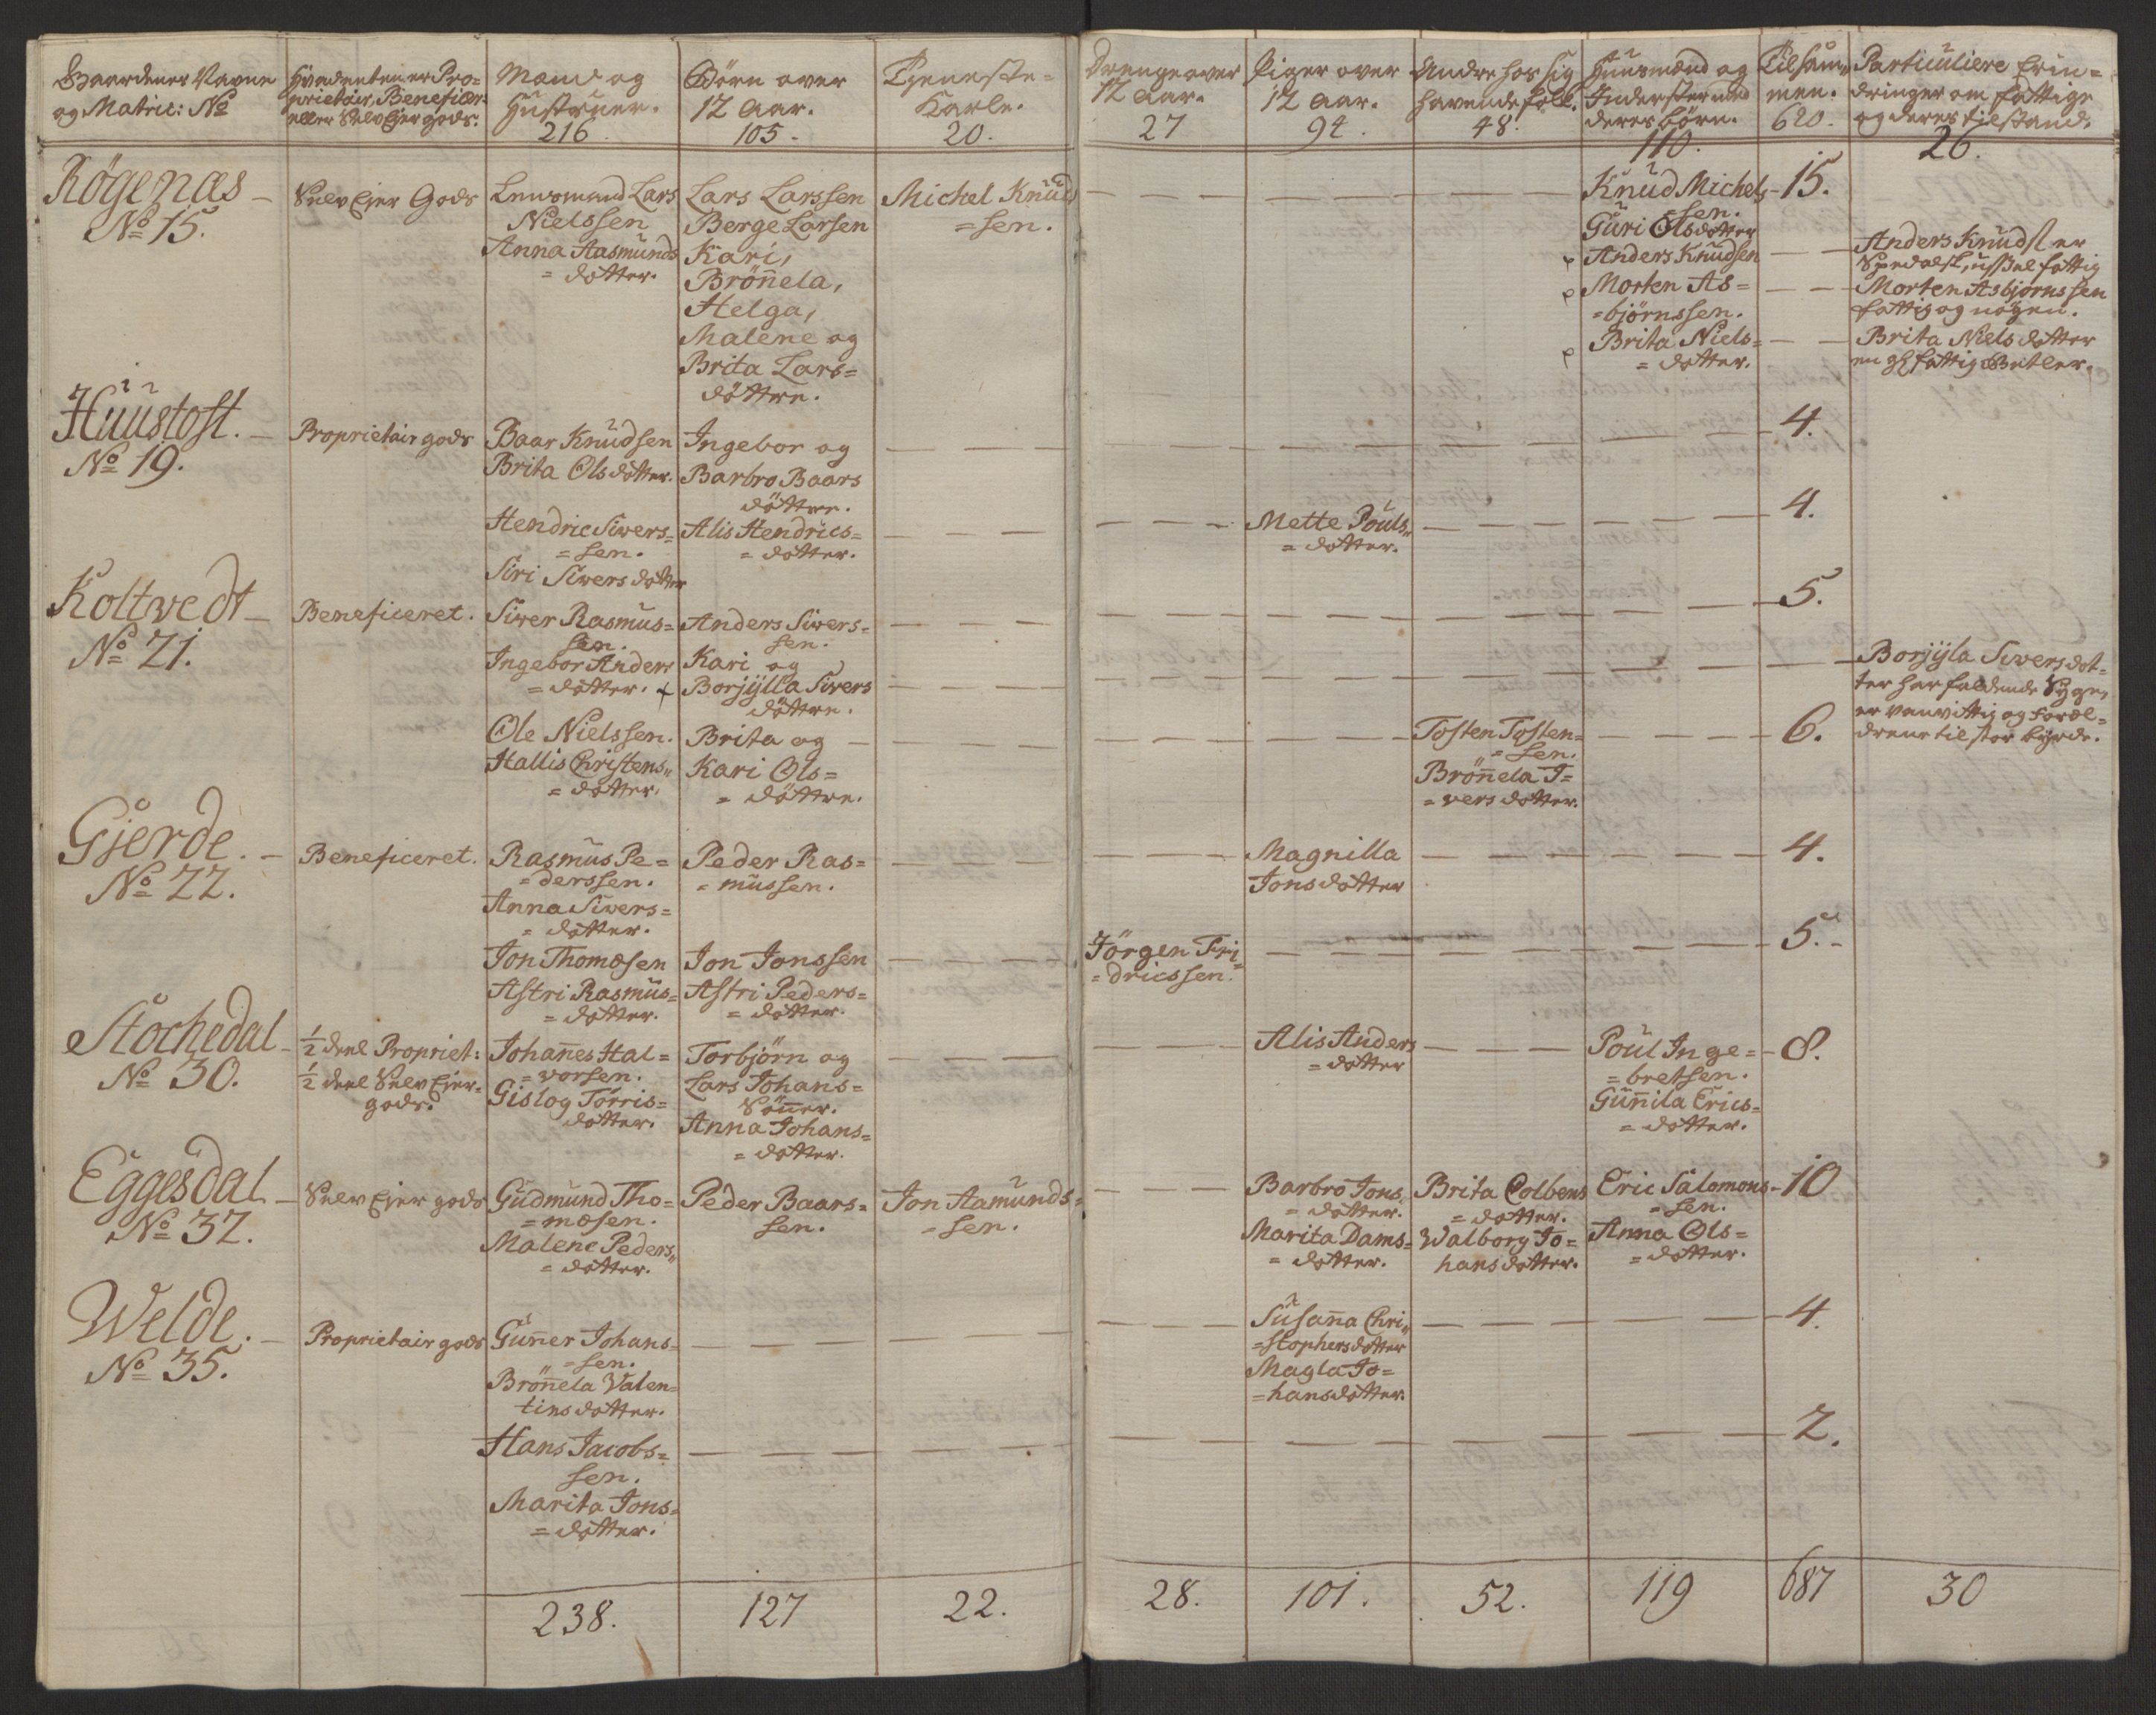 Gaardenes Navne
og Matric: No
Hvadenten er Pro=
prietair, Beneficer:
eller Selv Ejer gods.
Mænd og
Hustruer.
216
Börn over
12 Aar.
105.
Tjeneste=
Karle.
20.
Drenge over
12 Aar.
27
Piger over
12 Aar.
94.
Andre hos sig
havende folk.
48.
Huusmænd og
Inderster med
deres börn.
110.
Tilsam̄
men.
620.
Particuliere Erin=
dringer om fattige
og deres tilstand.
26.
Rögenæs
No 15.
Selv Ejer Gods
Lensmand Lars
Nielssen
Anna Aasmunds
= dotter.
Lars Larssen
Berge Larsen
Kari,
Brön̄ela,
Helga,
Malene og
Brita Lars=
döttre.
Michel Knud
=sen.
Knud Michels
=sen.
Guri Olsdotter
Anders Knudsen
Morten As=
=björnssen.
Brita Niels=
= dotter.
15.
Anders Knuds: er
Spedalsk, ussel fattig
Morten Asbjörnssen
fattig og nögen.
Brita Niels dotter
en gl. fattig Betler.
Huustoft.
No 19.
Proprietair gods
Baar Knudsen
Brita Ols dotter.
Ingebor og
Barbro Baars
döttre.
4.
Hendric Siwers=
=sen.
Siri Siwers dotter
Alis Hendrics=
= dotter.
Mette Pouls
= dotter.
4.
Koltvedt
No 21.
Beneficeret.
Siwer Rasmus=
sen.
Ingebor Anders
= dotter.
Anders Siwers=
sen.
Kari og
Borjylla Siwers
döttre.
5.
Borjyla Siwers dot=
ter har faldende Syge,
er vanvittig og Foræl=
drene til stor byrde.
Ole Nielssen.
Hallis Christens
= dotter.
Brita og
Kari Ols=
= döttre.
Tosten Tosten=
= sen.
Brön̄ela I=
= vers dotter.
6.
Gjerde.
No 22.
Beneficeret.
Rasmus Pe=
=derssen.
Anna Siwers=
= dotter.
Peder Ras=
= mussen.
Magnilla
Jons dotter
4.
Jon Thomæsen
Astri Rasmus=
= dotter.
Jon Jonssen
Astri Peders=
= dotter.
Jörgen Fri=
= dricssen.
5.
Stochedal
No 30.
½ deel Propriet:
½ deel Selv Ejer-
gods.
Johan̄es Hal=
= vorsen.
Gislog Torris=
dotter.
Torbjörn og
Lars Johans=
Sön̄er.
Anna Johans=
= dotter.
Alis Anders
= dotter
Poul Inge=
= bretsen.
Gun̄ila Erics=
= dotter.
8.
Eggesdal
No 32.
Selv Ejer gods
Gudmund Tho=
= mæsen.
Malene Peders
= dotter.
Peder Baars=
sen.
Jon Aamunds=
= sen.
Barbro Jons
= dotter.
Marita Dams=
= dotter.
Brita Colbens
= dotter.
Walborg Jo=
hans dotter.
Eric Salomons
= sen.
Anna Ols=
= dotter.
10
Welde.
No 35.
Proprietair gods
Gun̄er Johans=
= sen.
Brön̄ela Valen=
tins dotter.
Susan̄a Chri
=stophers dotter
Magla Jo=
= hansdotter.
4.
Hans Jacobs=
sen.
Marita Jons=
= dotter.
2.
238.
127
22.
28.
101.
52.
119
687
30